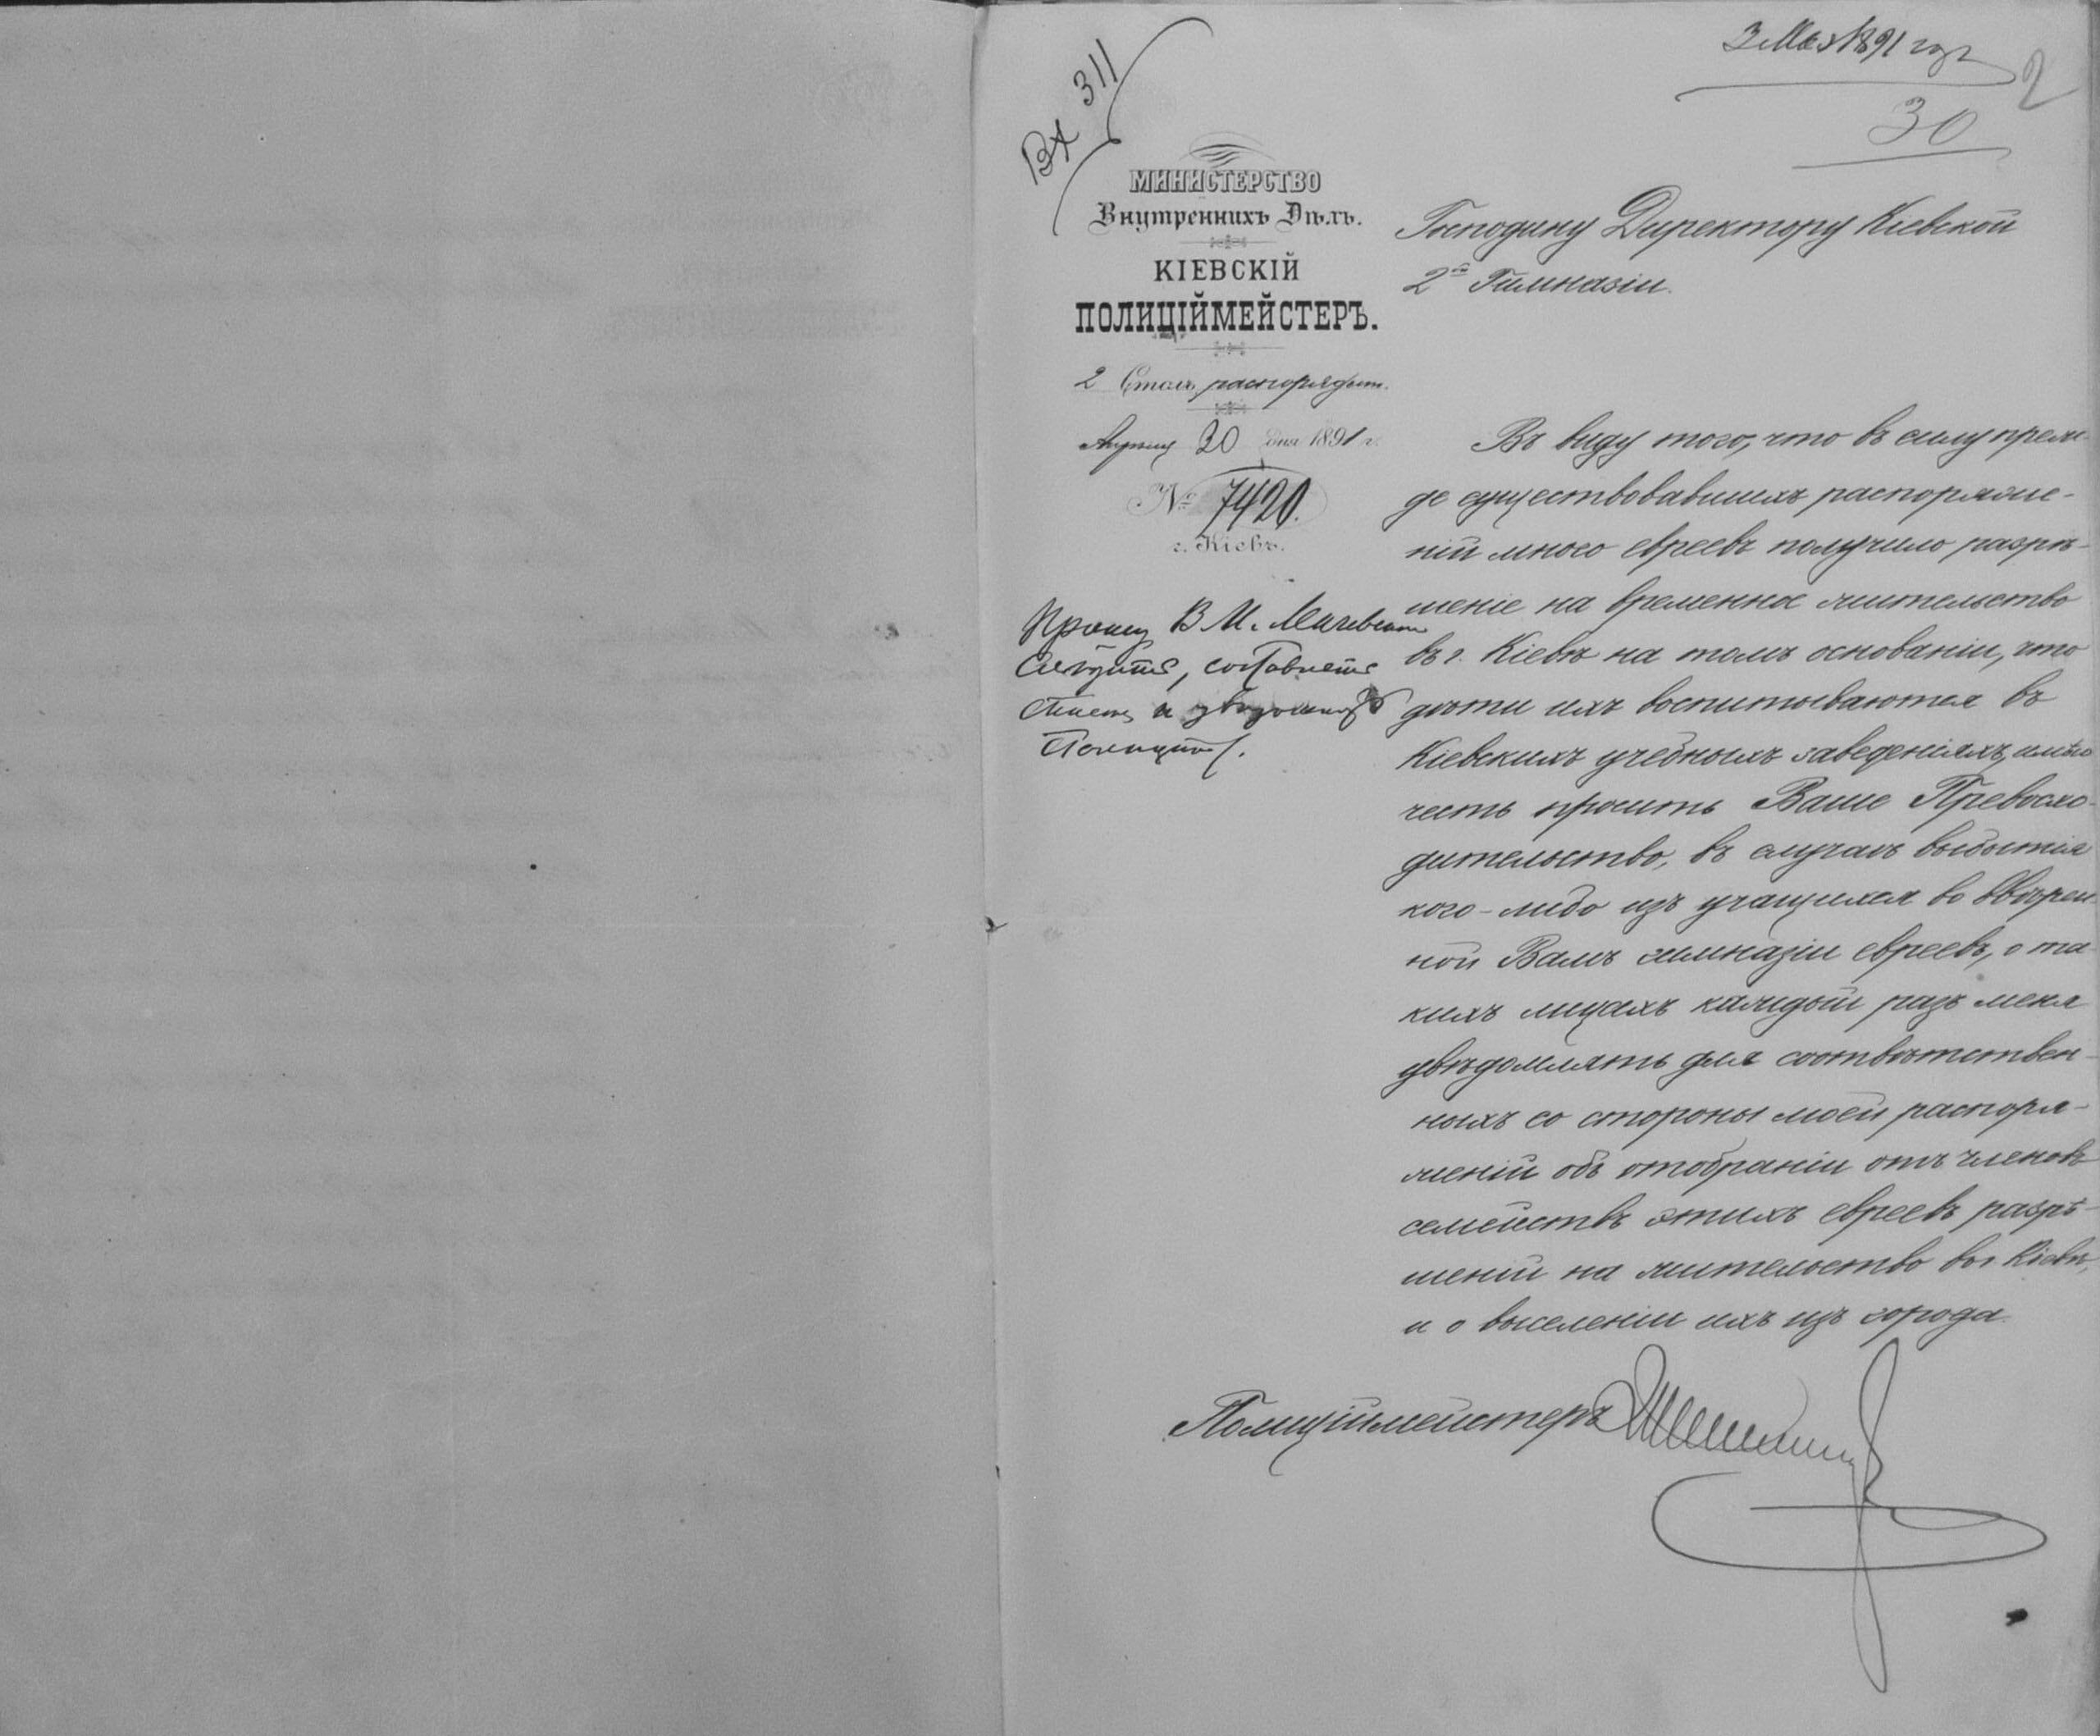 Вх 311
3 Мая 1891 года
2
30
МИНИСТЕРСТВО
Внутреннихъ Дѣлъ.
КІЕВСКІЙ
ПОЛИЦІЙМЕЙСТЕРЪ.
2 Столъ распорядит.
Апрѣля 30 дня 1891 г.
№ 7420.
г. Кіевъ.
Прошу В. И.
слѣдить, составить
списокъ и
Господину Директору Кіевской
2й Гимназіи.
Въ виду того, что въ силу преж-
де существовавшихъ распоряже-
ній много евреевъ получило разрѣ-
шеніе на временное жительство
въ г. Кіевѣ на томъ основаніи, что
дѣти ихъ воспитываются въ
Кіевскихъ учебныхъ заведеніяхъ, имѣю
честь просить Ваше Превосхо-
дительство, въ случаѣ выбытія
кого-либо изъ учащихся во ввѣрен-
ной Вамъ гимназіи евреевъ, о та-
кихъ лицахъ каждый разъ меня
увѣдомлять для соотвѣтствен-
ныхъ со стороны моей распоря-
женій объ отобраніи отъ членовъ
семействъ этихъ евреевъ разрѣ-
шеній на жительство въ г. Кіевѣ,
и о выселеніи ихъ изъ города.
Полиціймейстеръ